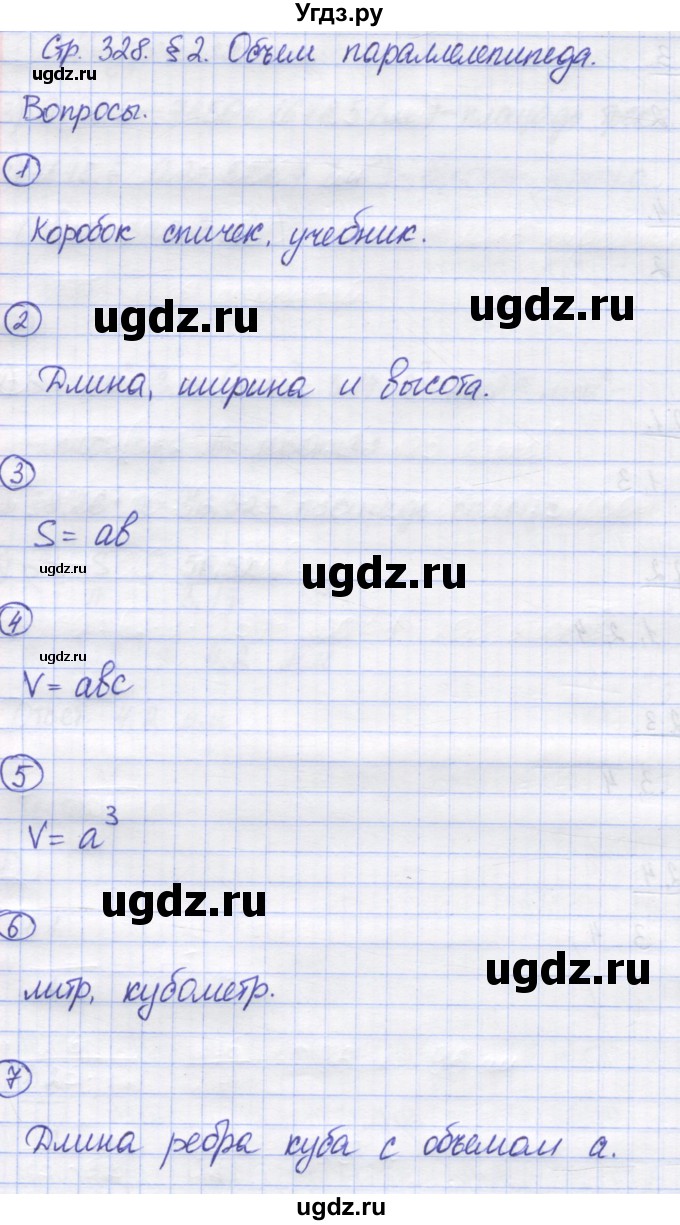 Угдз.ру
Стр. 328. § 2. Объем параллелепипеда.
ugdz.ru
Вопросы.
1
Коробок спичек, учебник.
2
ugdz.ru
ugdz.ru
Длина, ширина и высота.
3
S = ab
ugdz.ru
ugdz.ru
4
ugdz.ru
V = abc
5
V = a³
6
ugdz.ru
ugdz.ru
литр, кубометр.
7
Длина ребра куба с объемом a.
ugdz.ru